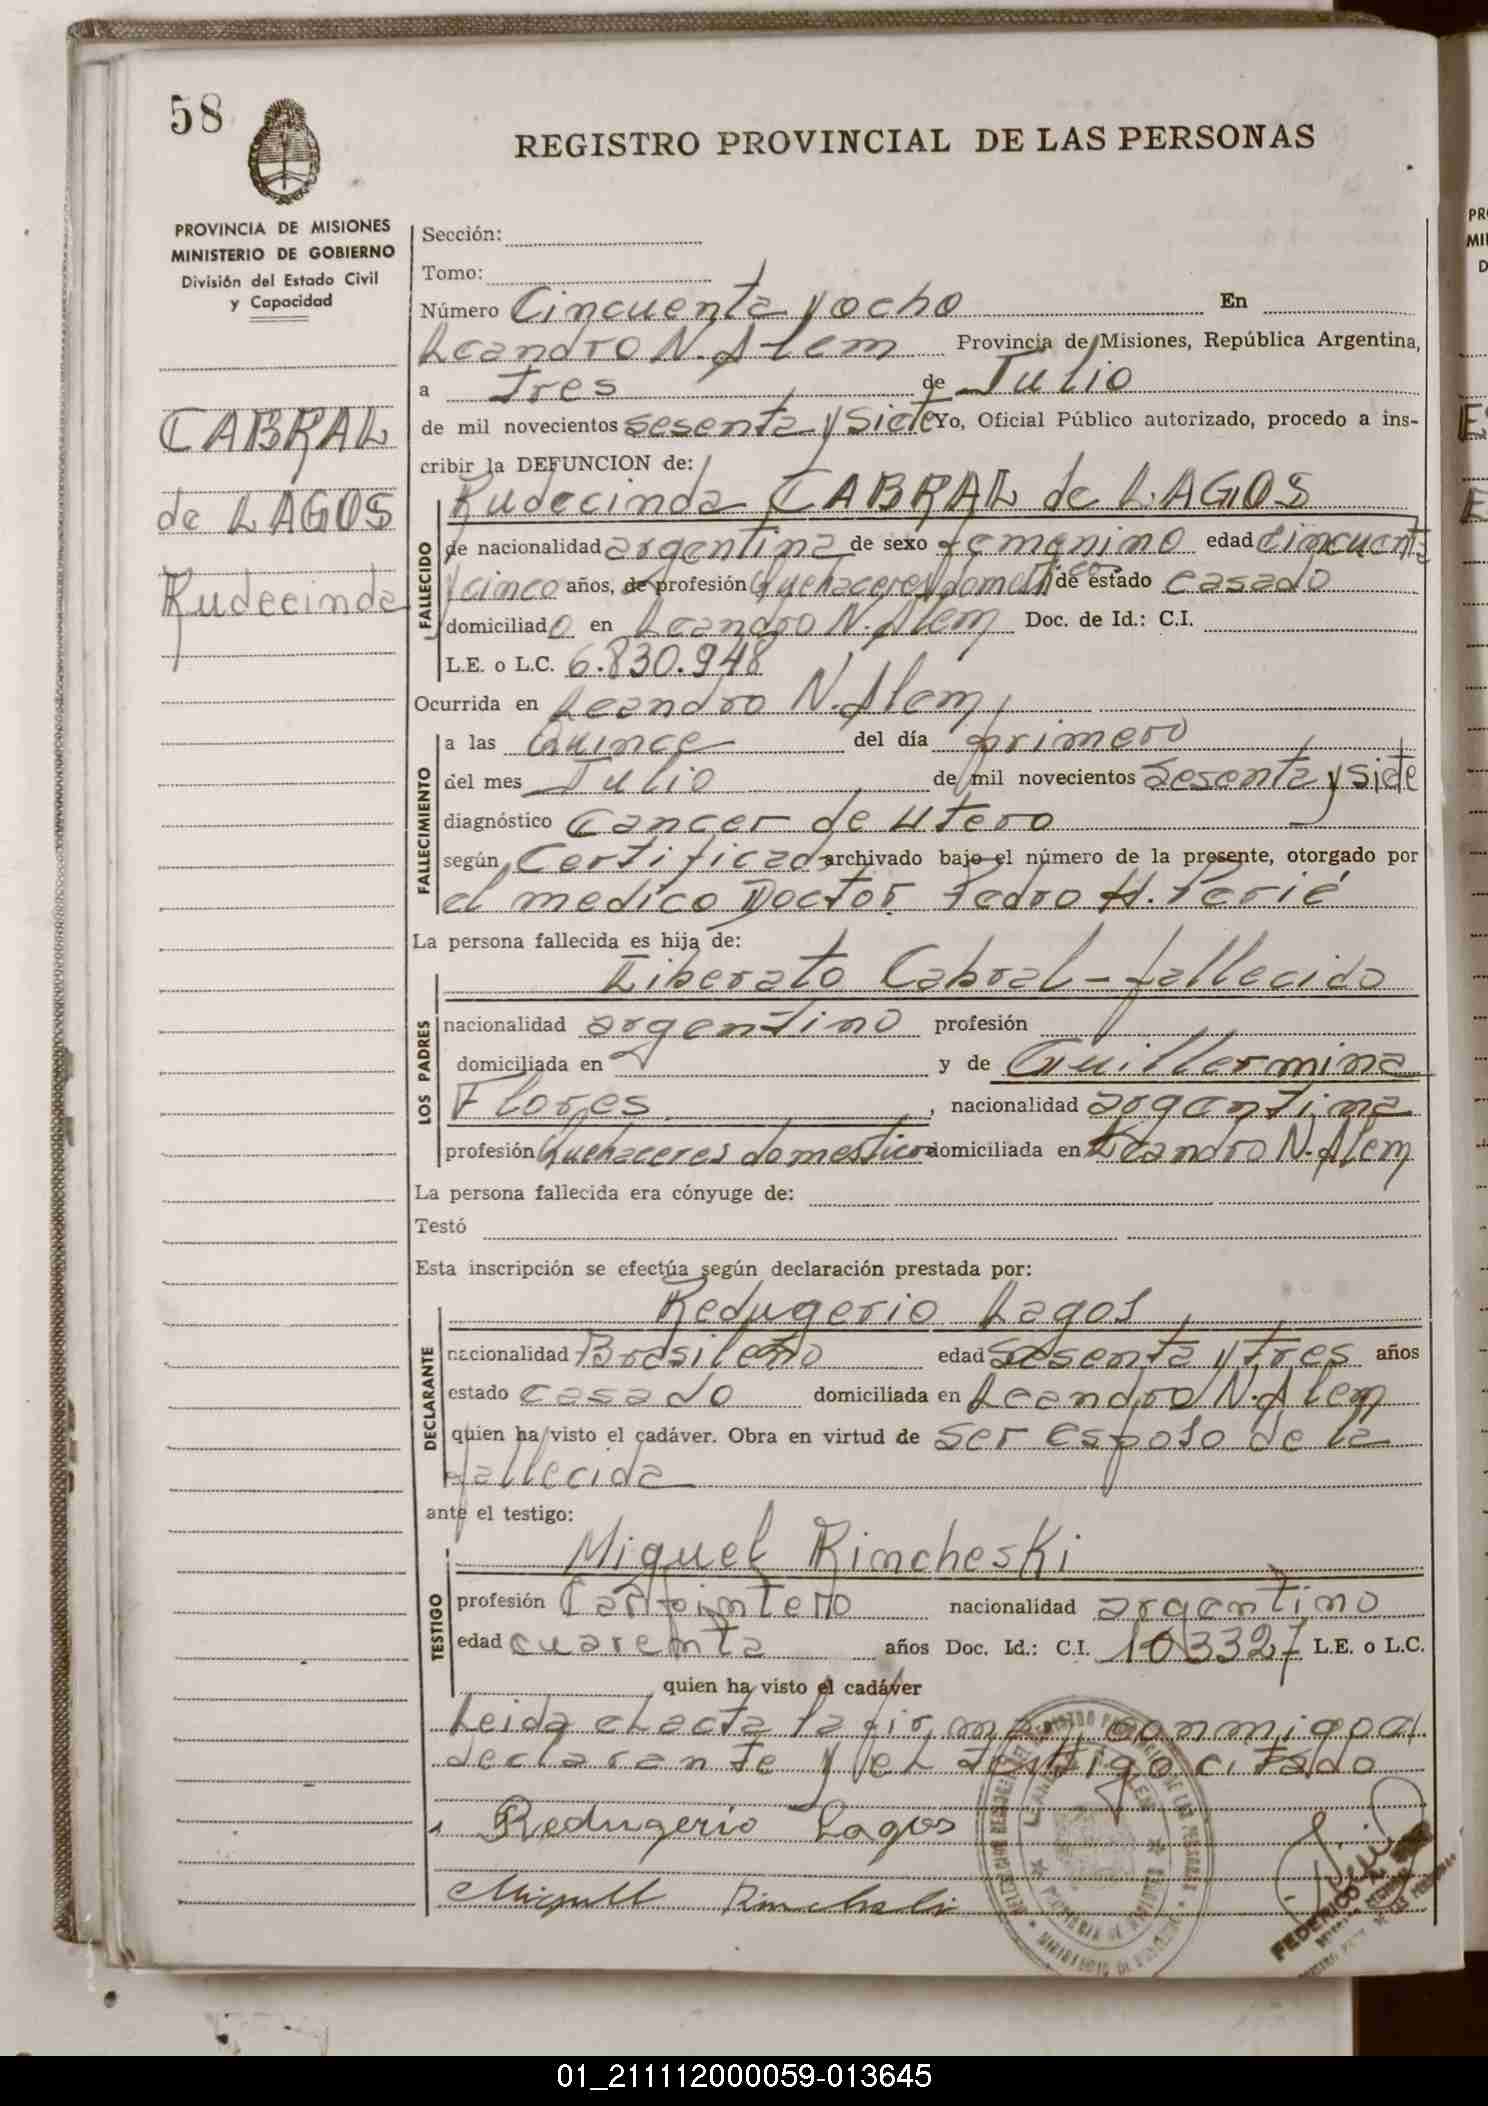 58
REGISTRO PROVINCIAL DE LAS PERSONAS
PROVINCIA DE MISIONES
MINISTERIO DE GOBIERNO
División del Estado Civil
y Capacidad
CABRAL
de LAGOS
Rudecinda
Sección:
Tomo:
Número Cincuenta y ocho En
Leandro N. Alem Provincia de Misiones, República Argentina,
a tres de Julio
de mil novecientos sesenta y siete Yo, Oficial Público autorizado, procedo a ins-
cribir la DEFUNCION de:
Rudecinda CABRAL de LAGOS
FALLECIDO
de nacionalidad argentina de sexo femenino edad cincuenta
y cinco años, de profesión Quehaceres domestico de estado casado
domiciliado en Leandro N. Alem Doc. de Id.: C.I.
L.E. o L.C. 6.830.948
Ocurrida en Leandro N. Alem
FALLECIMIENTO
a las Quince del día primero
del mes Julio de mil novecientos sesenta y siete
diagnóstico Cancer de utero
según Certificado archivado bajo el número de la presente, otorgado por
el medico Doctor Pedro H. Perié
La persona fallecida es hija de:
LOS PADRES
Liberato Cabral - fallecido
nacionalidad argentino profesión
domiciliada en y de Guillermina
Flores , nacionalidad argentina
profesión Quehaceres domestico domiciliada en Leandro N. Alem
La persona fallecida era cónyuge de:
Testó
Esta inscripción se efectúa según declaración prestada por:
DECLARANTE
Redugerio Lagos
nacionalidad Brasileño edad sesenta y tres años
estado casado domiciliada en Leandro N. Alem
quien ha visto el cadáver. Obra en virtud de ser esposo de la
fallecida
ante el testigo:
TESTIGO
Miguel Rincheski
profesión Carpintero nacionalidad argentino
edad cuarenta años Doc. Id.: C.I. 103327 L.E. o L.C.
quien ha visto el cadáver
Leida el acta la firman conmigo el
declarante y el testigo citado
Redugerio Lagos
Miguel
FEDERICO A.
01_211112000059-013645